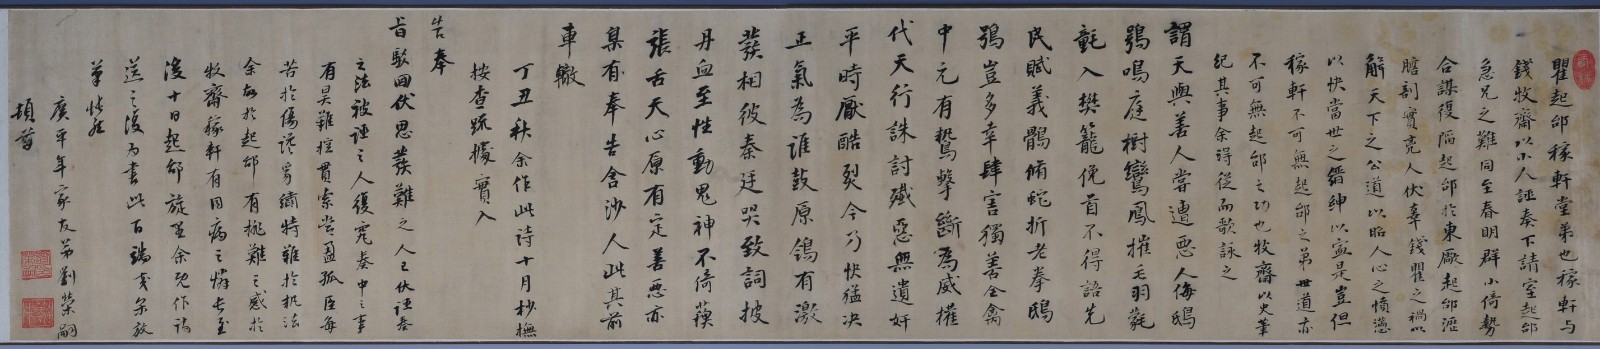 瞿起邰稼軒堂弟也稼軒與
錢牧齋以小人誣奏下請室起邰
急兄之難同至春明群小倚勢
合謀復陷起邰於東厰起邰瀝
膽剖實亮人伏辜錢瞿之禍以
解天下之公道以昭人心之憤懣
以快當世之縉紳以寧是豈但
稼軒不可無起邰之弟世道亦
不可無起邰之功也牧齋以史筆
紀其事余得從而歌詠之
謂天與善人嘗遭惡人侮鴟
鶚鳴庭樹鸞鳳摧毛羽毿
毿入樊籠俛首不得語先
民賦義鶻脩蛇折老拳鴟
鴞豈多幸肆害獨善全禽
中元有鷙擊斷為威權
代天行誅討殲惡無遺奸
平時厭酷烈今乃快猛决
正氣為誰鼓原鴒有激
發相彼秦廷哭致詞披
丹血至性動鬼神不倚蘋
張舌天心原有定善惡亦
臬有奉告含沙人此其前
車轍
丁丑秋余作此詩十月杪撫
按查疏據實入
告奉
旨駁回伏思發難之人已伏誣奏
之法被誣之人復寃奏中之事
有昊難控貫索嘗盈孤臣每
苦於傷讒易繡特難於執法
余故於起邰有桃難之感於
牧齋稼軒有同病之憐長至
後十日起邰旋里余既作詩
送之復為書此百端交氽放
筆恍然
廣平年家友弟劉榮嗣
頓首